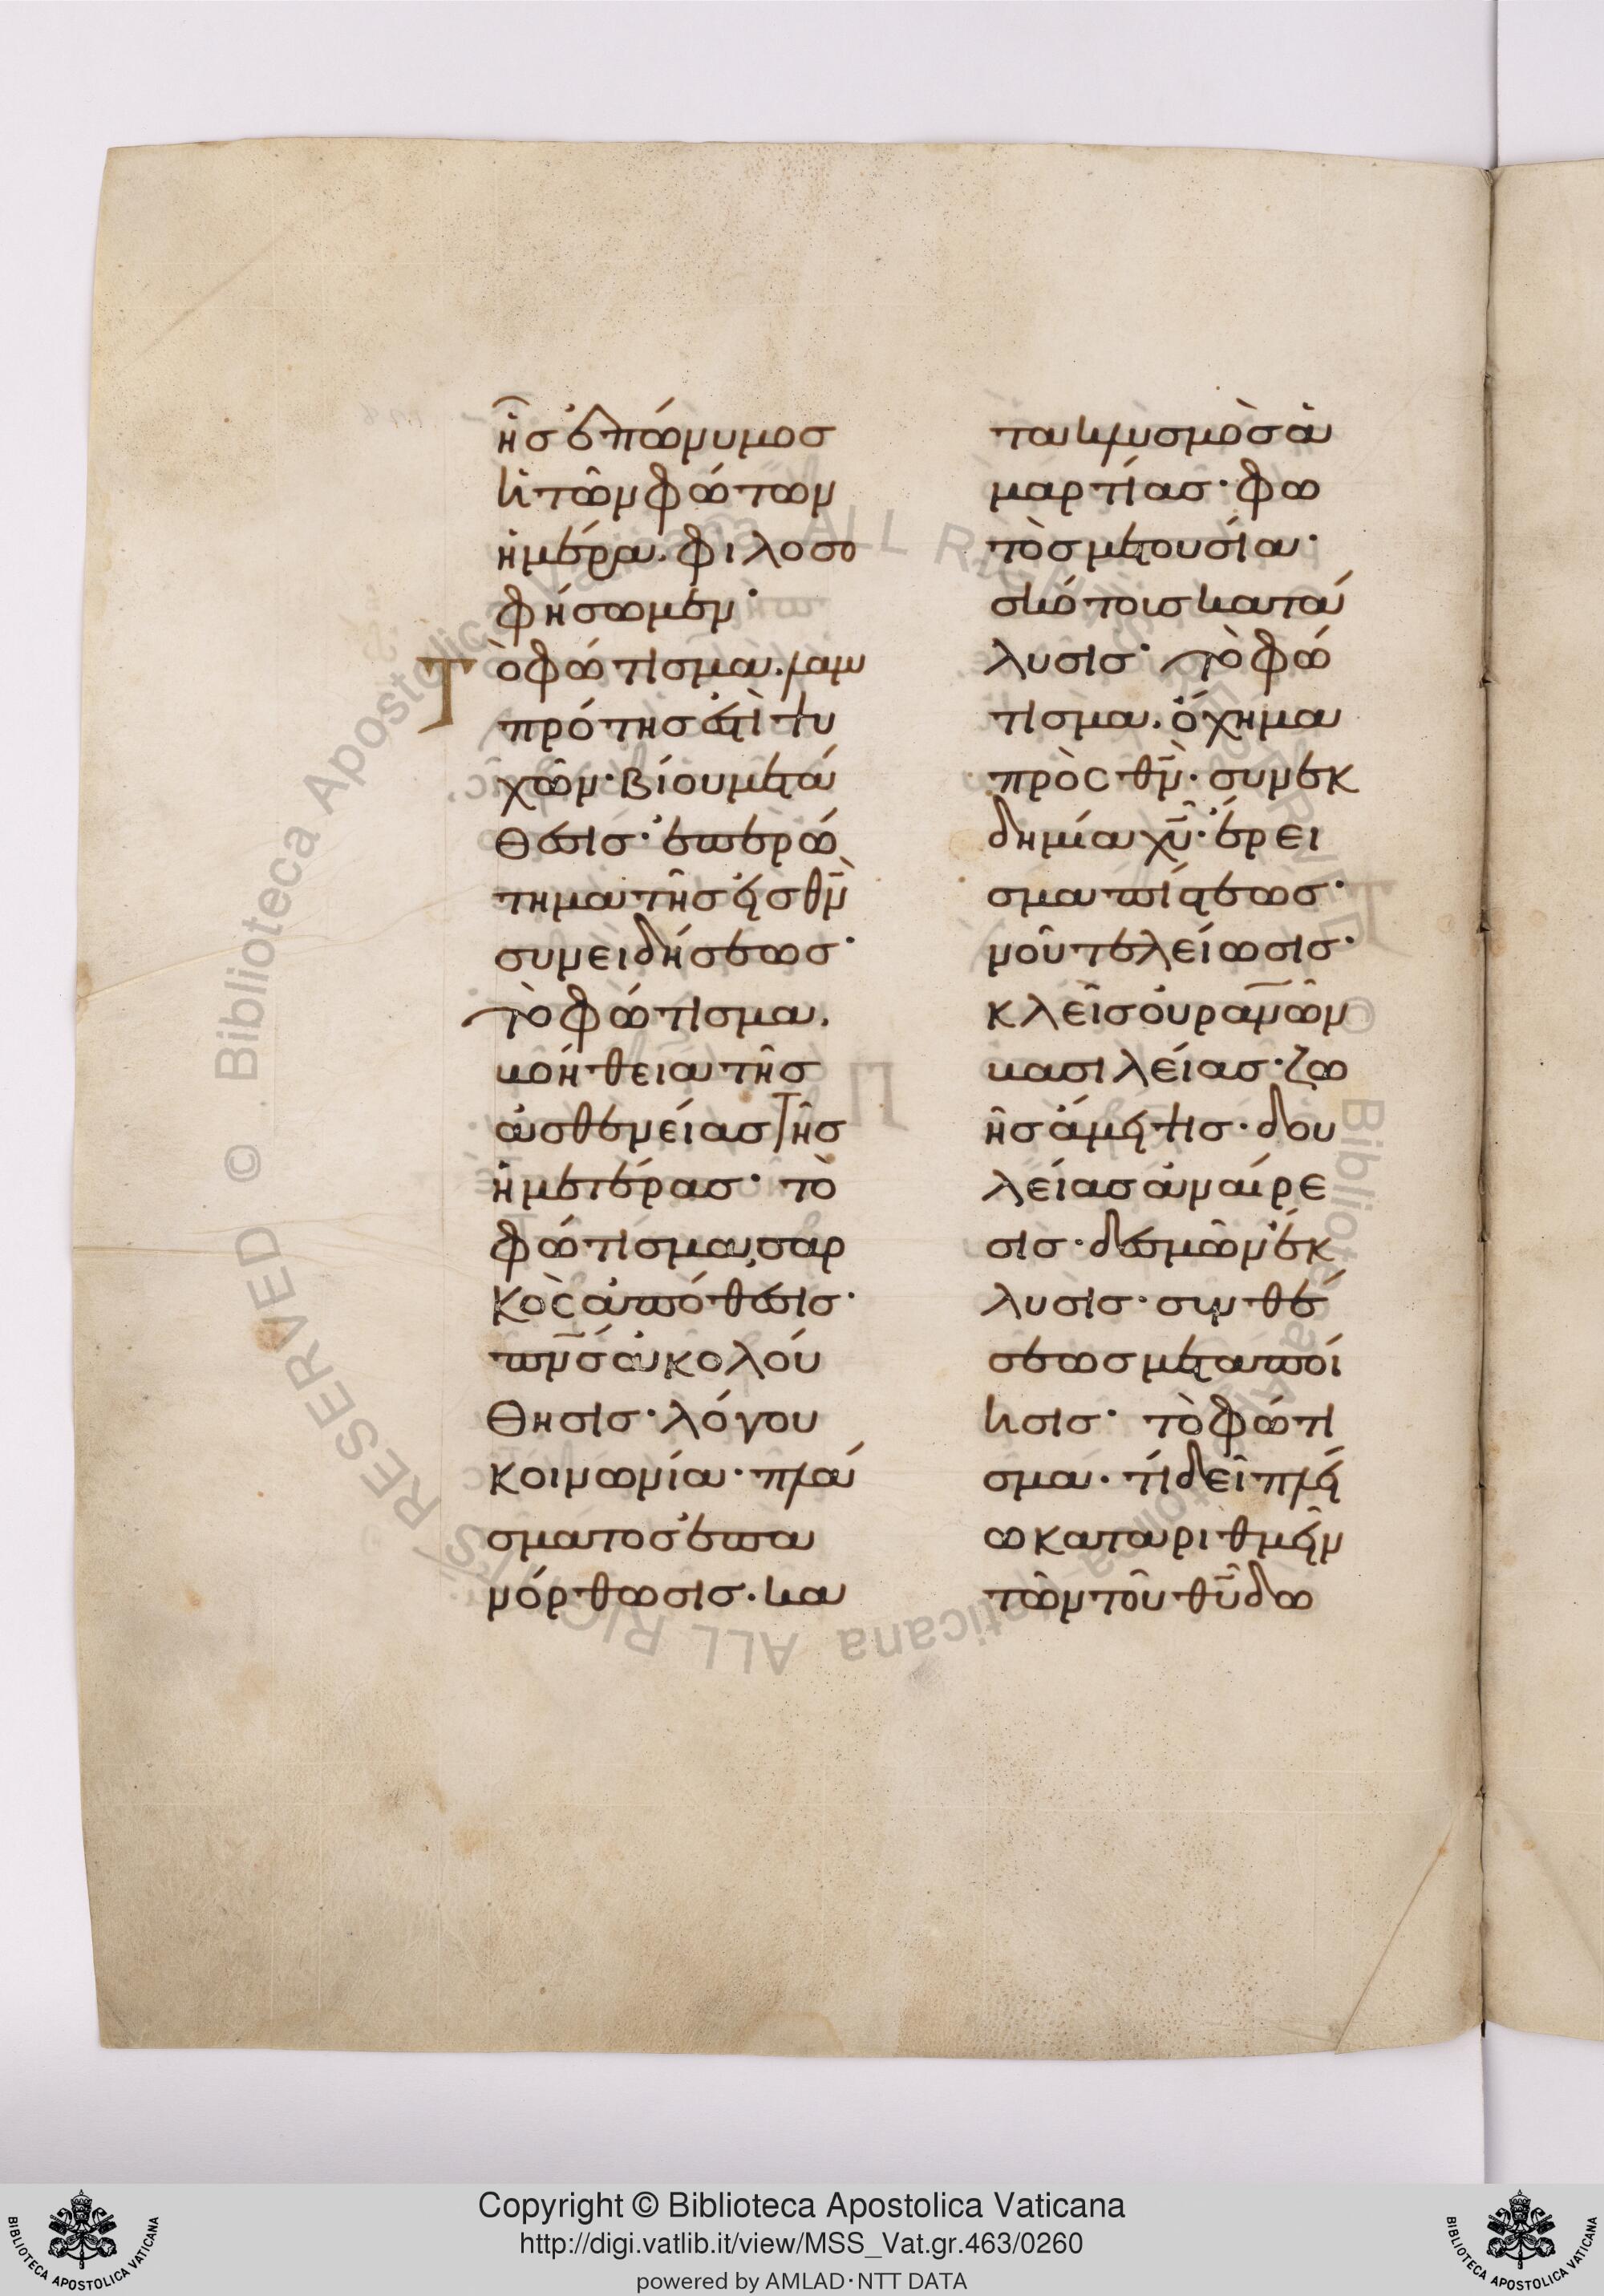 ἧς ἐπώνυμος
ἡ τῶν φώτων
ἡμέρα. φιλοσο
φήσωμεν·
Τὸ φώτισμα. λαμ
πρότης ἐστὶ ψυ
χῶν· βίου μετά
θεσις· ἐπερώ
τημα τῆς εἰς θν̅
συνειδήσεως·
τὸ φώτισμα.
βοήθεια τῆς
ἀσθενείας τῆς
ἡμετέρας· τὸ
φώτισμα, σαρ
κὸς ἀπόθεσις·
πν̅ς ἀκολού
θησις· λόγου
κοινωνία· πλά
σματος ἐπα
νόρθωσις· κα
τακλυσμὸς ἁ
μαρτίας· φω
τὸς μετουσία·
σκότους κατά
λυσις· τὸ φώ
τισμα. ὄχημα
πρὸς θν̅· συνεκ
δημία χυ̅· ἔρει
σμα πίστεως·
νοῦ τελείωσις·
κλεῖς οὐρανῶν
βασιλείας· ζω
ῆς ἄμειψις· δου
λείας ἀναίρε
σις· δεσμῶν ἔκ
λυσις· συνθέ
σεως μεταποί
ησις· τὸ φώτι
σμα· τί δεῖ πλεί
ω καταριθμεῖν
τῶν τοῦ θυ̅ δώ
Copyright © Biblioteca Apostolica Vaticana
http://digi.vatlib.it/view/MSS_Vat.gr.463/0260
powered by AMLAD·NTT DATA